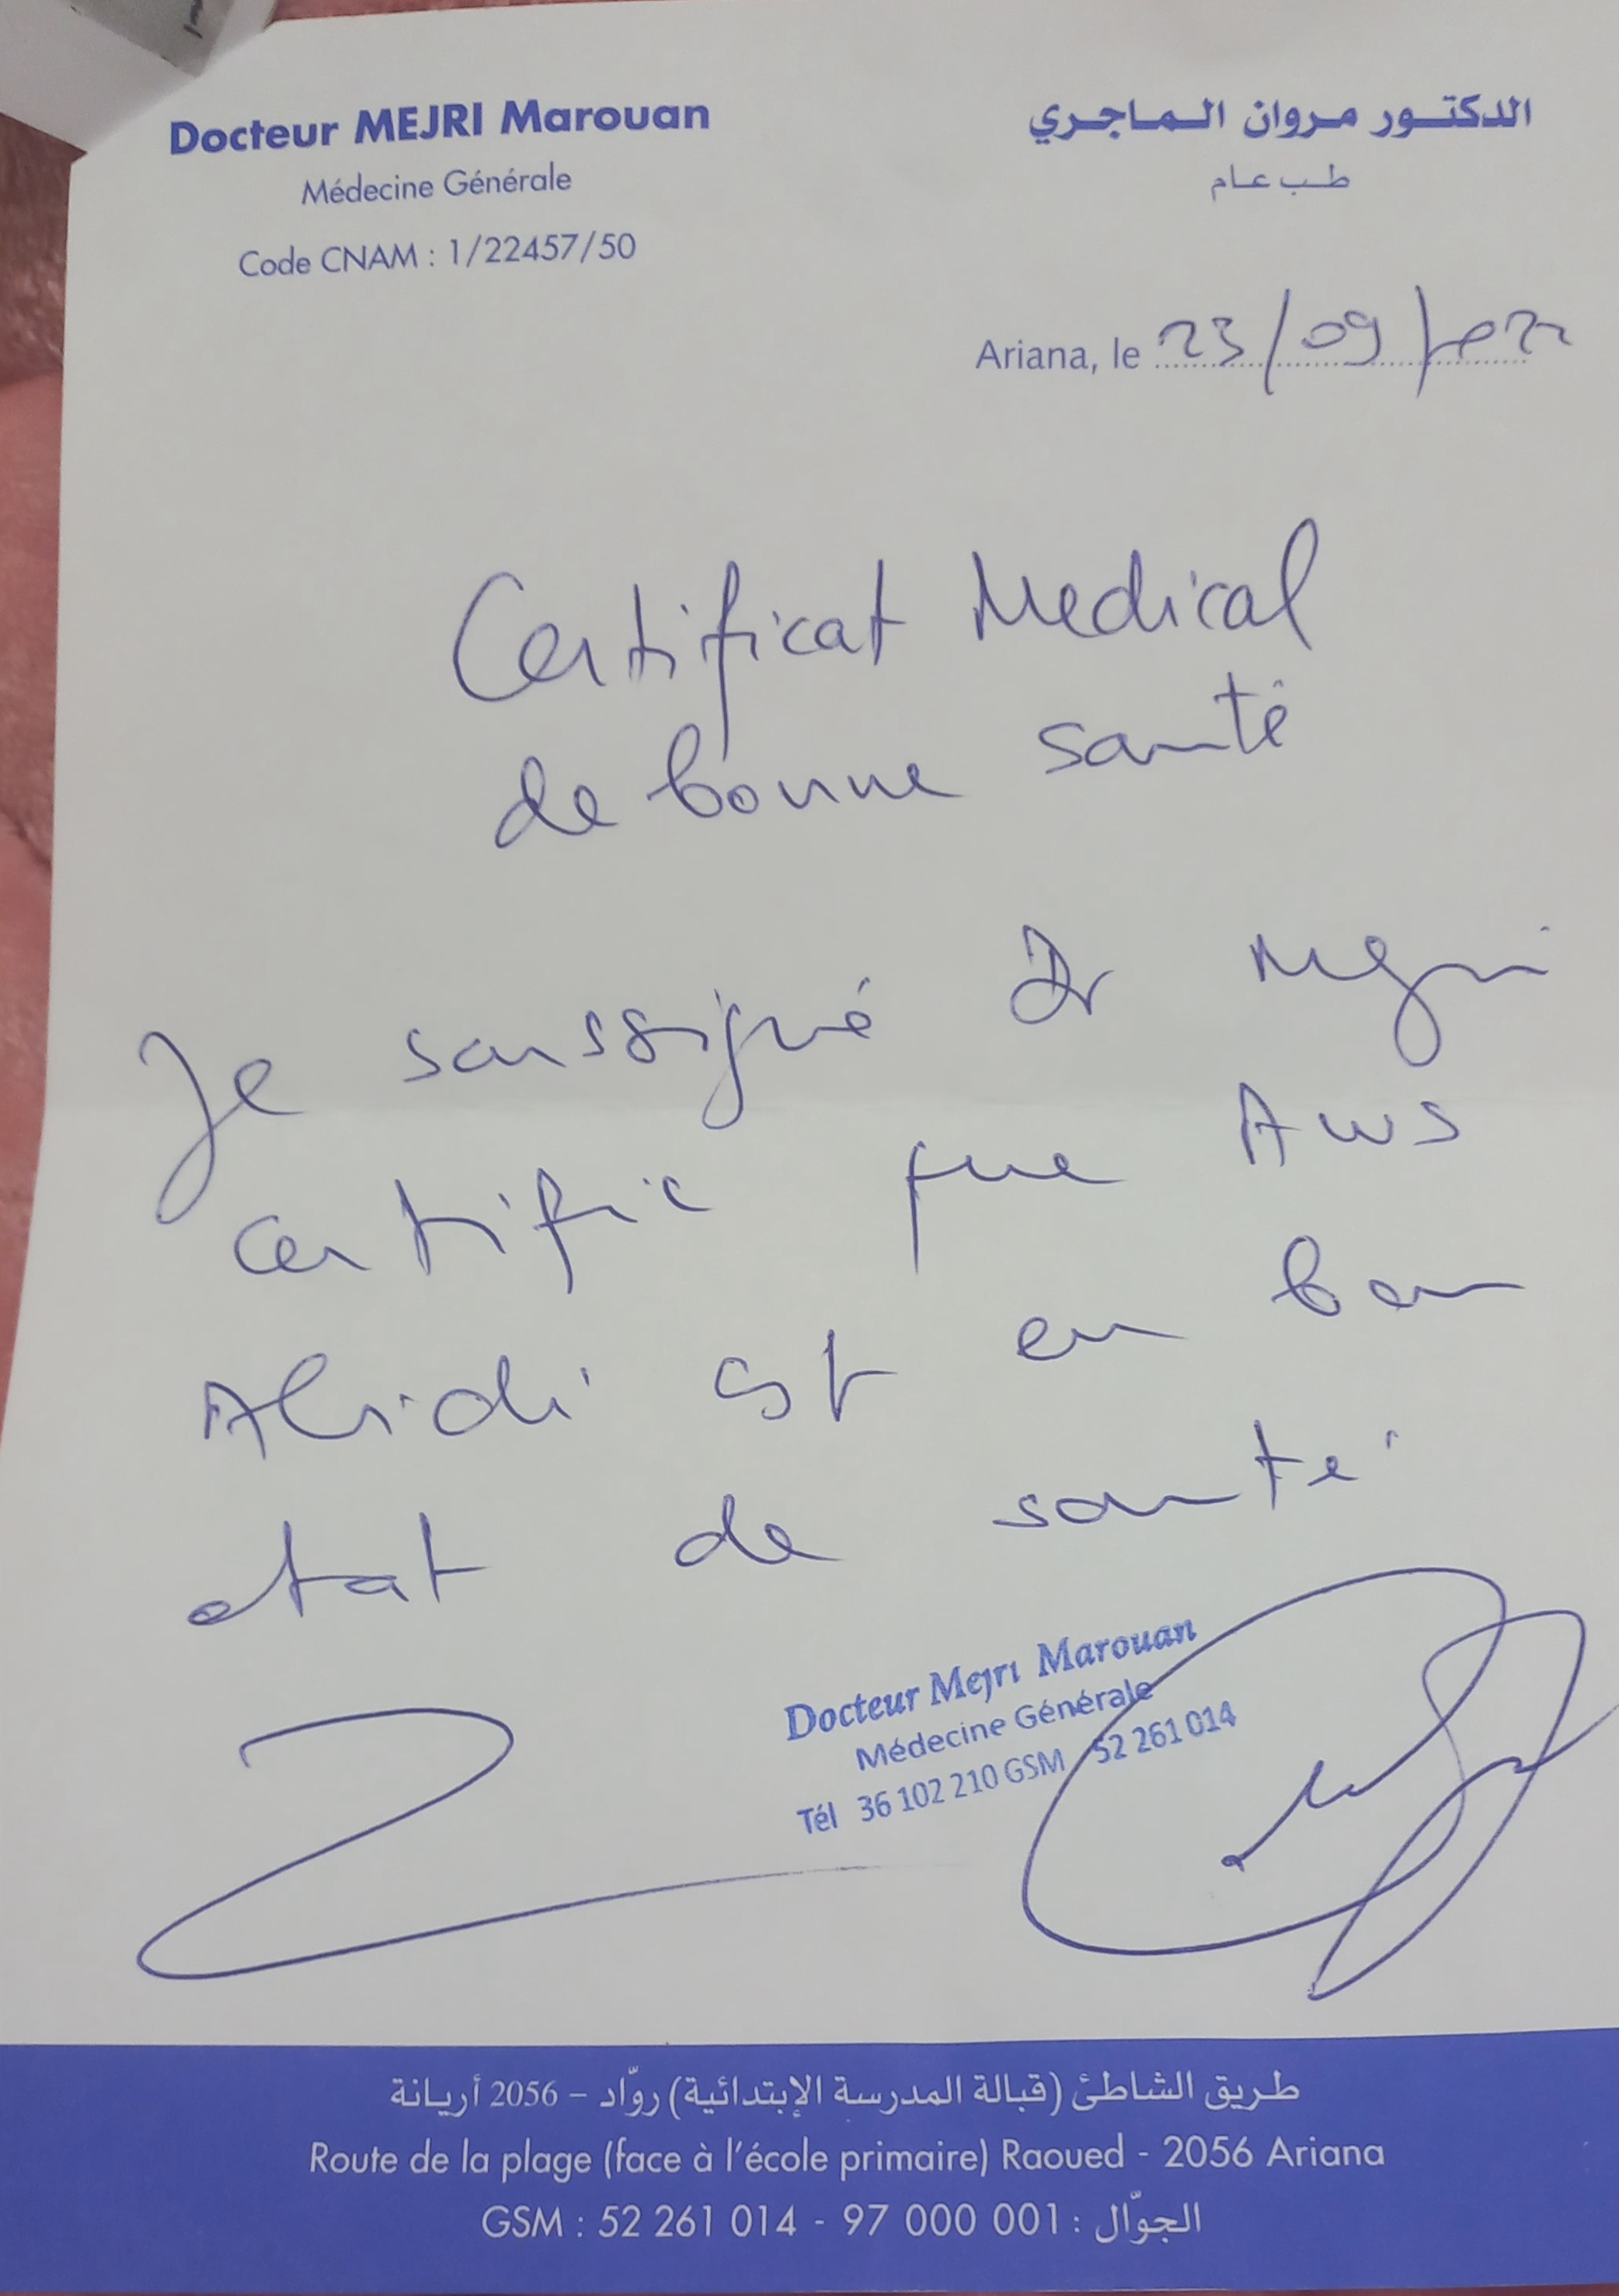 Docteur MEJRI Marouan
Médecine Générale
Code CNAM : 1/22457/50
الدكتور مروان الماجري
طب عام
Ariana, le 23/09/2022
Certificat Medical
de bonne santé
Je soussigné Dr Mejri
certifie que Aws
Abidi est en bon
etat de santé
Docteur Mejri Marouan
Médecine Générale
Tél 36 102 210 GSM 52 261 014
طريق الشاطئ (قبالة المدرسة الإبتدائية) روّاد – 2056 أريانة
Route de la plage (face à l'école primaire) Raoued - 2056 Ariana
GSM : 52 261 014 - 97 000 001 : الجوّال